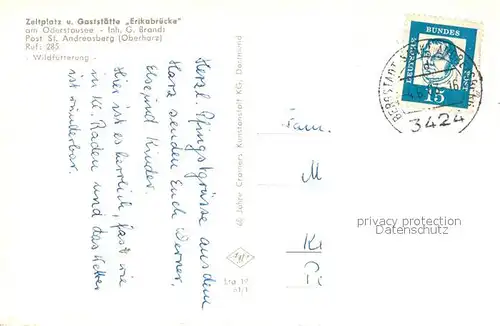 Zeltplatz u. Gaststätte „Erikabrücke"
am Oderstausee - Inh. G. Brandt
Post St. Andreasberg (Oberharz)
Ruf: 285
- Wildfütterung -
Herzl. Pfingstgrüsse aus dem
Harz senden Euch Werner,
Else, und Kinder.
Hier ist es herrlich, fast wie
in Kl. Baden und das Wetter
ist wunderbar.
46 Jahre Cramers Kunstanstalt KG. Dortmund
Fam.
M
K
DEUTSCHE
BUNDES
15
BERGSTADT
3424
privacy protection
Datenschutz